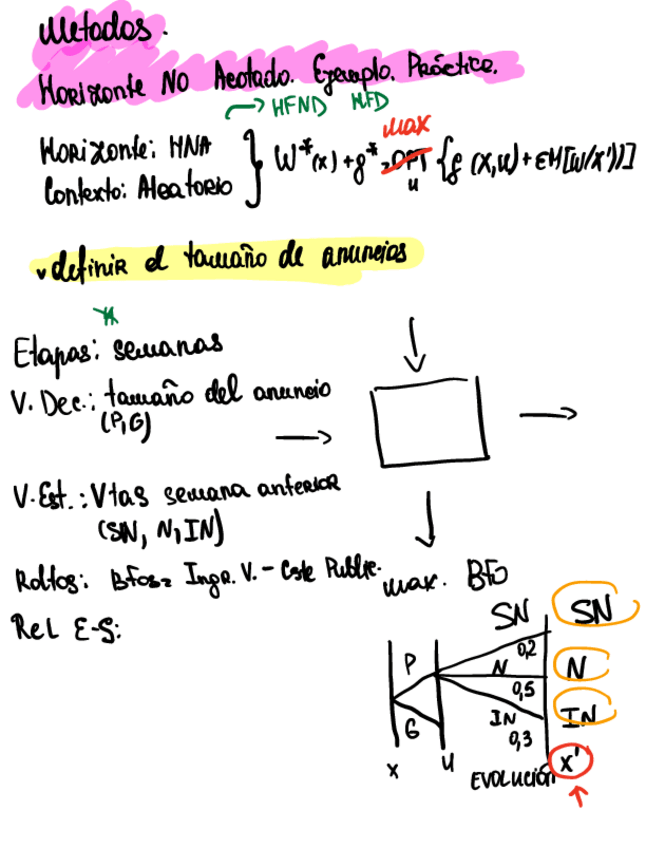 Metodos.
Horizonte No Acotado. Ejemplo. Práctica.
→ HFND HFD
Horizonte: HNA
Contexto: Aleatorio
max
W*(x) + g* = OPT {g (x,u) + EM[W(x')]}
u
definir el tamaño de anuncios
Etapas: semanas
V. Dec.: tamaño del anuncio
(P, G)
V. Est.: Vtas semana anterior
(SN, N, IN)
Rdtos: Bfos = Ingr. V. - Cste Public.
max. Bfo
Rel E-S:
SN SN
P 0,2
N N
0,5
G IN IN
0,3
x u EVOLUCIÓN x'